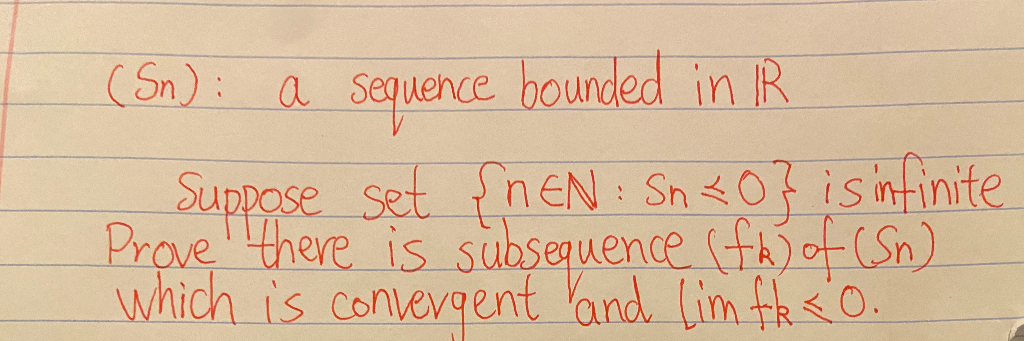 (Sn): a sequence bounded in ℝ
Suppose set {n∈N : Sn ≤ 0} is infinite
Prove there is subsequence (fk) of (Sn)
which is convergent and lim fk ≤ 0.